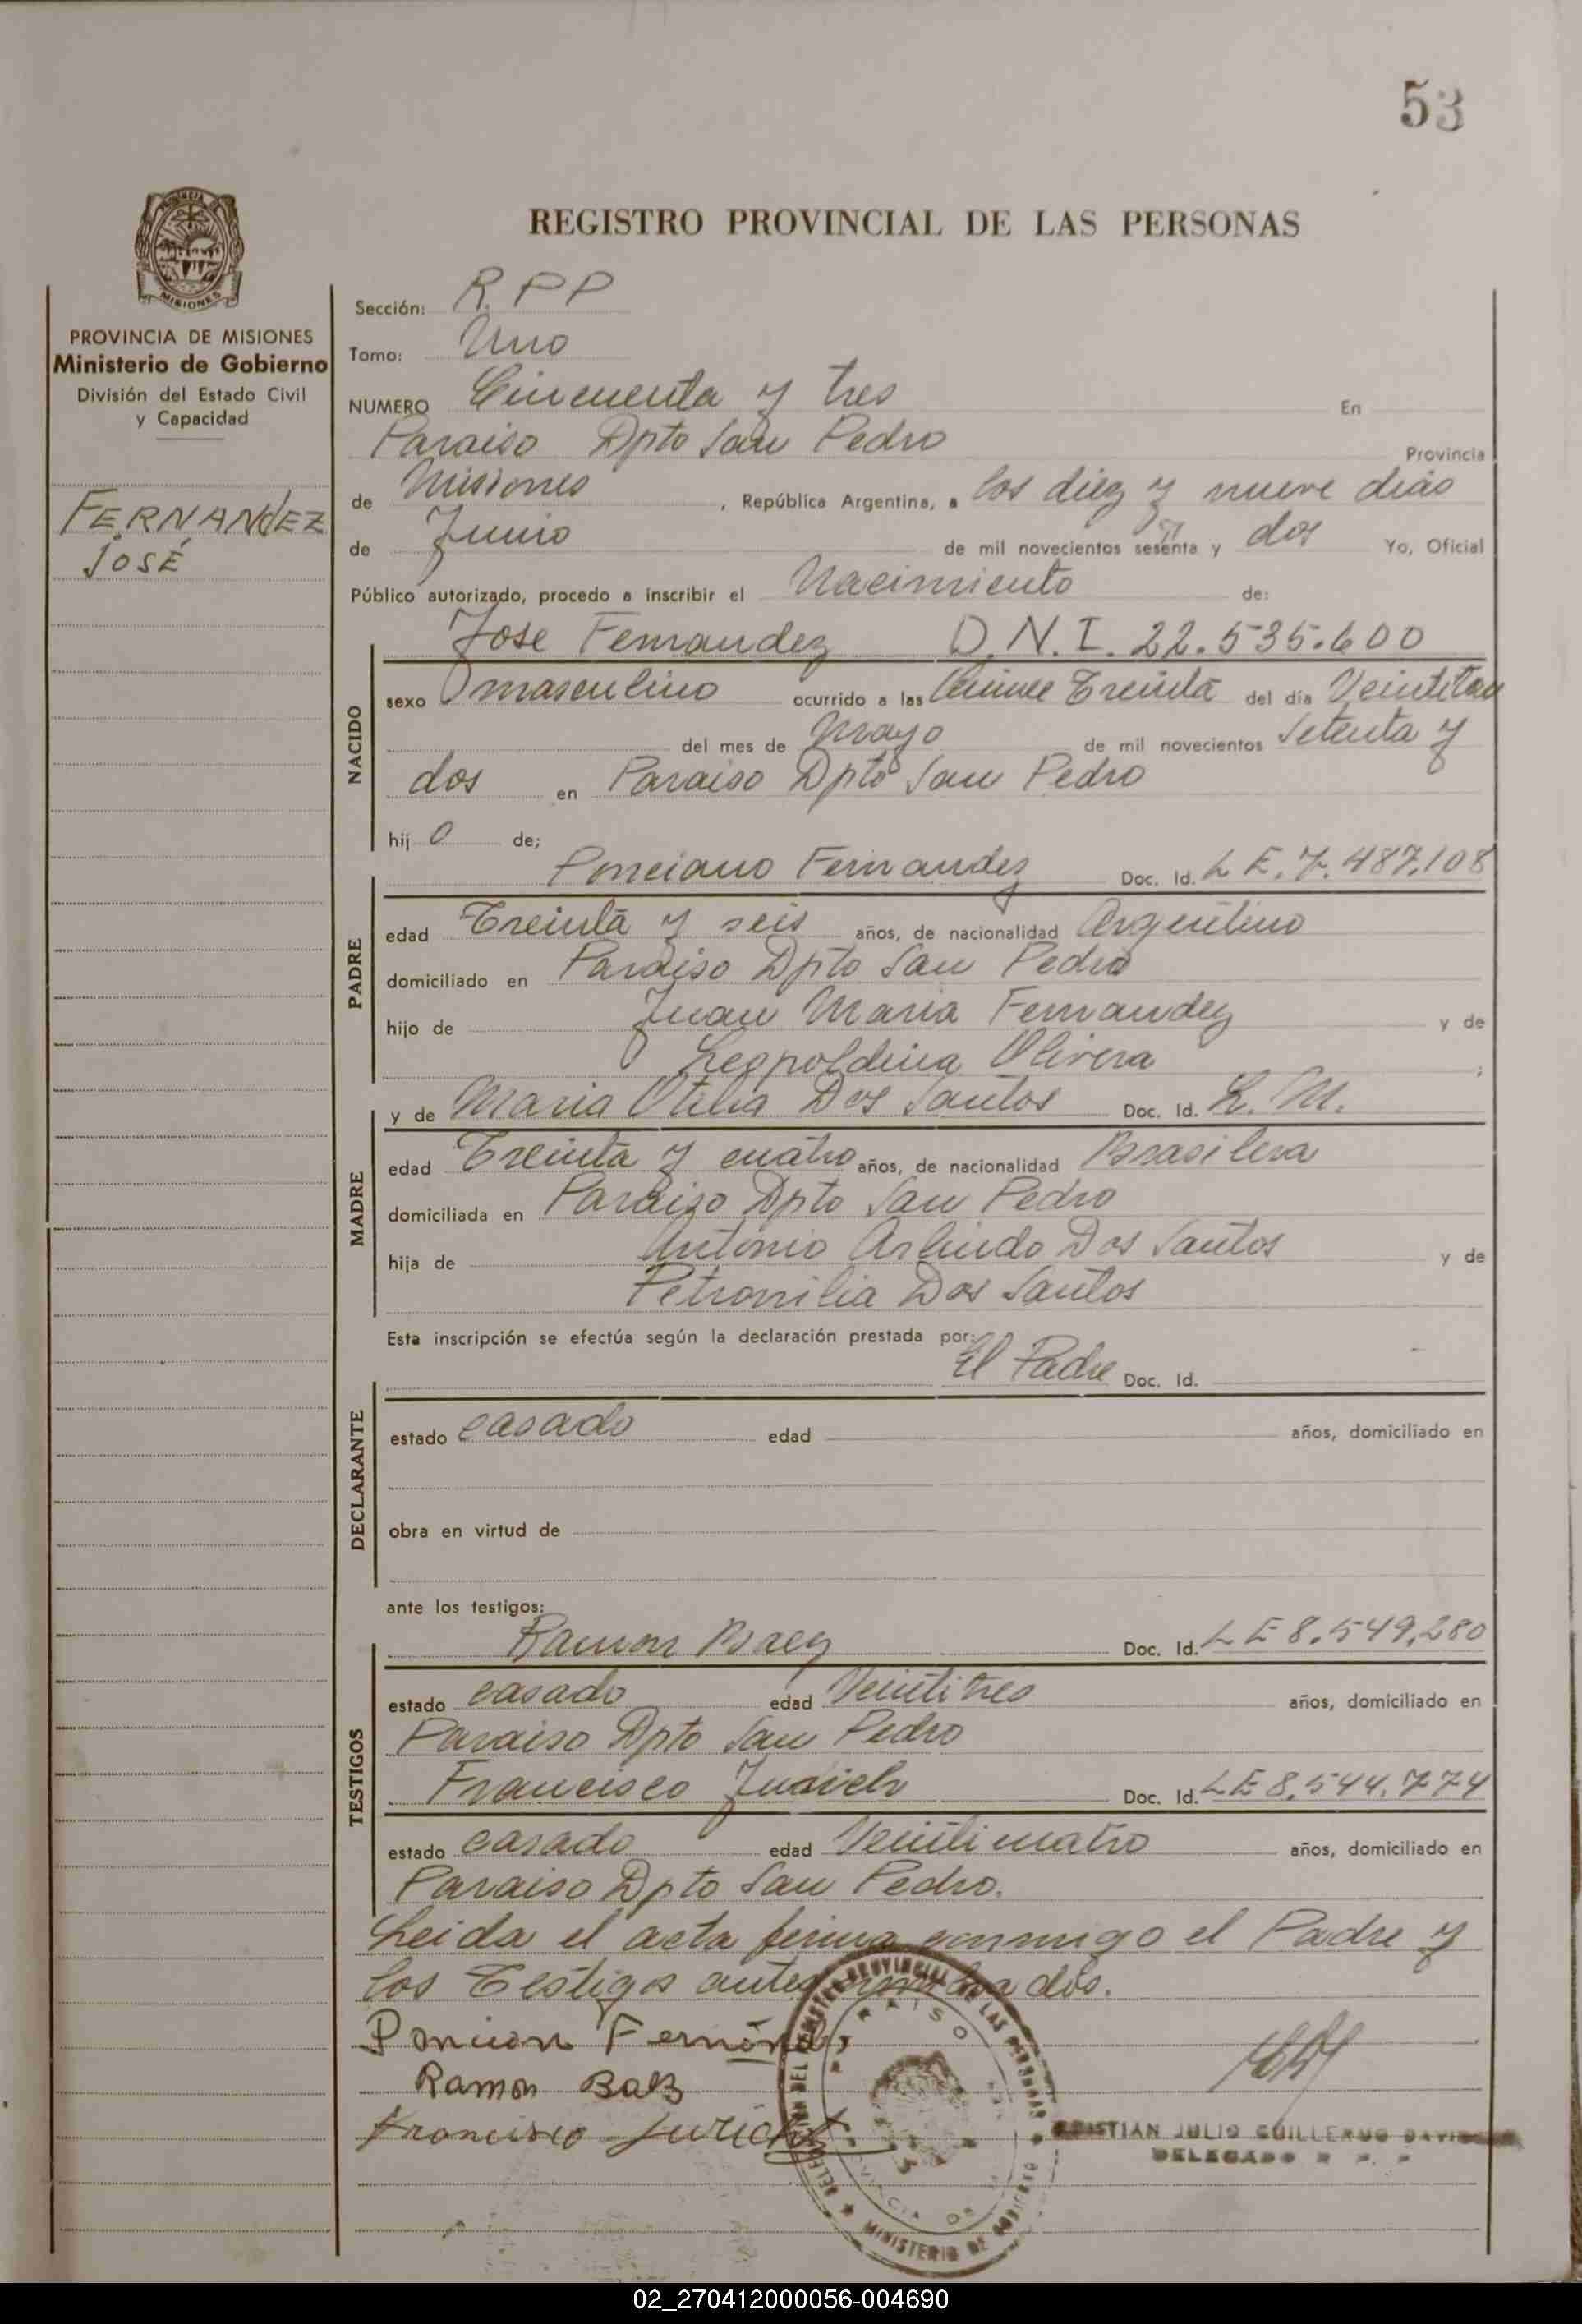 53
REGISTRO PROVINCIAL DE LAS PERSONAS
PROVINCIA DE MISIONES
Ministerio de Gobierno
División del Estado Civil
y Capacidad
FERNANDEZ
JOSÉ
Sección: R.P.P
Tomo: Uno
NUMERO Cincuenta y tres En
Paraiso Dpto San Pedro Provincia
de Misiones, República Argentina, a los diez y nueve dias
de Junio de mil novecientos sesenta y dos Yo, Oficial
Público autorizado, procedo a inscribir el Nacimiento de:
Jose Fernandez D.N.I. 22.535.600
NACIDO
sexo masculino ocurrido a las Quince Treinta del día
del mes de Mayo de mil novecientos Setenta y
dos en Paraiso Dpto San Pedro
hijo de;
Ponciano Fernandez Doc. Id. L E. 7.487.108
PADRE
edad Treinta y seis años, de nacionalidad Argentino
domiciliado en Paraiso Dpto San Pedro
hijo de Juan Maria Fernandez y de
Leopoldina Olivera ;
y de Maria Otilia Dos Santos Doc. Id.
MADRE
edad Treinta y cuatro años, de nacionalidad Brasilera
domiciliada en Paraiso Dpto San Pedro
hija de Antonio Arlindo Dos Santos y de
Petronilia Dos Santos
Esta inscripción se efectúa según la declaración prestada por:
El Padre Doc. Id.
DECLARANTE
estado casado edad años, domiciliado en
obra en virtud de
ante los testigos:
Ramon Baez Doc. Id. L E 8.549.280
TESTIGOS
estado casado edad Veintitres años, domiciliado en
Paraiso Dpto San Pedro
Francisco Doc. Id. L E 8.544.774
estado casado edad Veinticuatro años, domiciliado en
Paraiso Dpto San Pedro.
Leida el acta firma conmigo el Padre y
los Testigos antes nombrados.
Ramon Baez
Francisco
CRISTIAN JULIO GUILLERMO
DELEGADO R. P. P.
MINISTERIO DE GOBIERNO
02_270412000056-004690